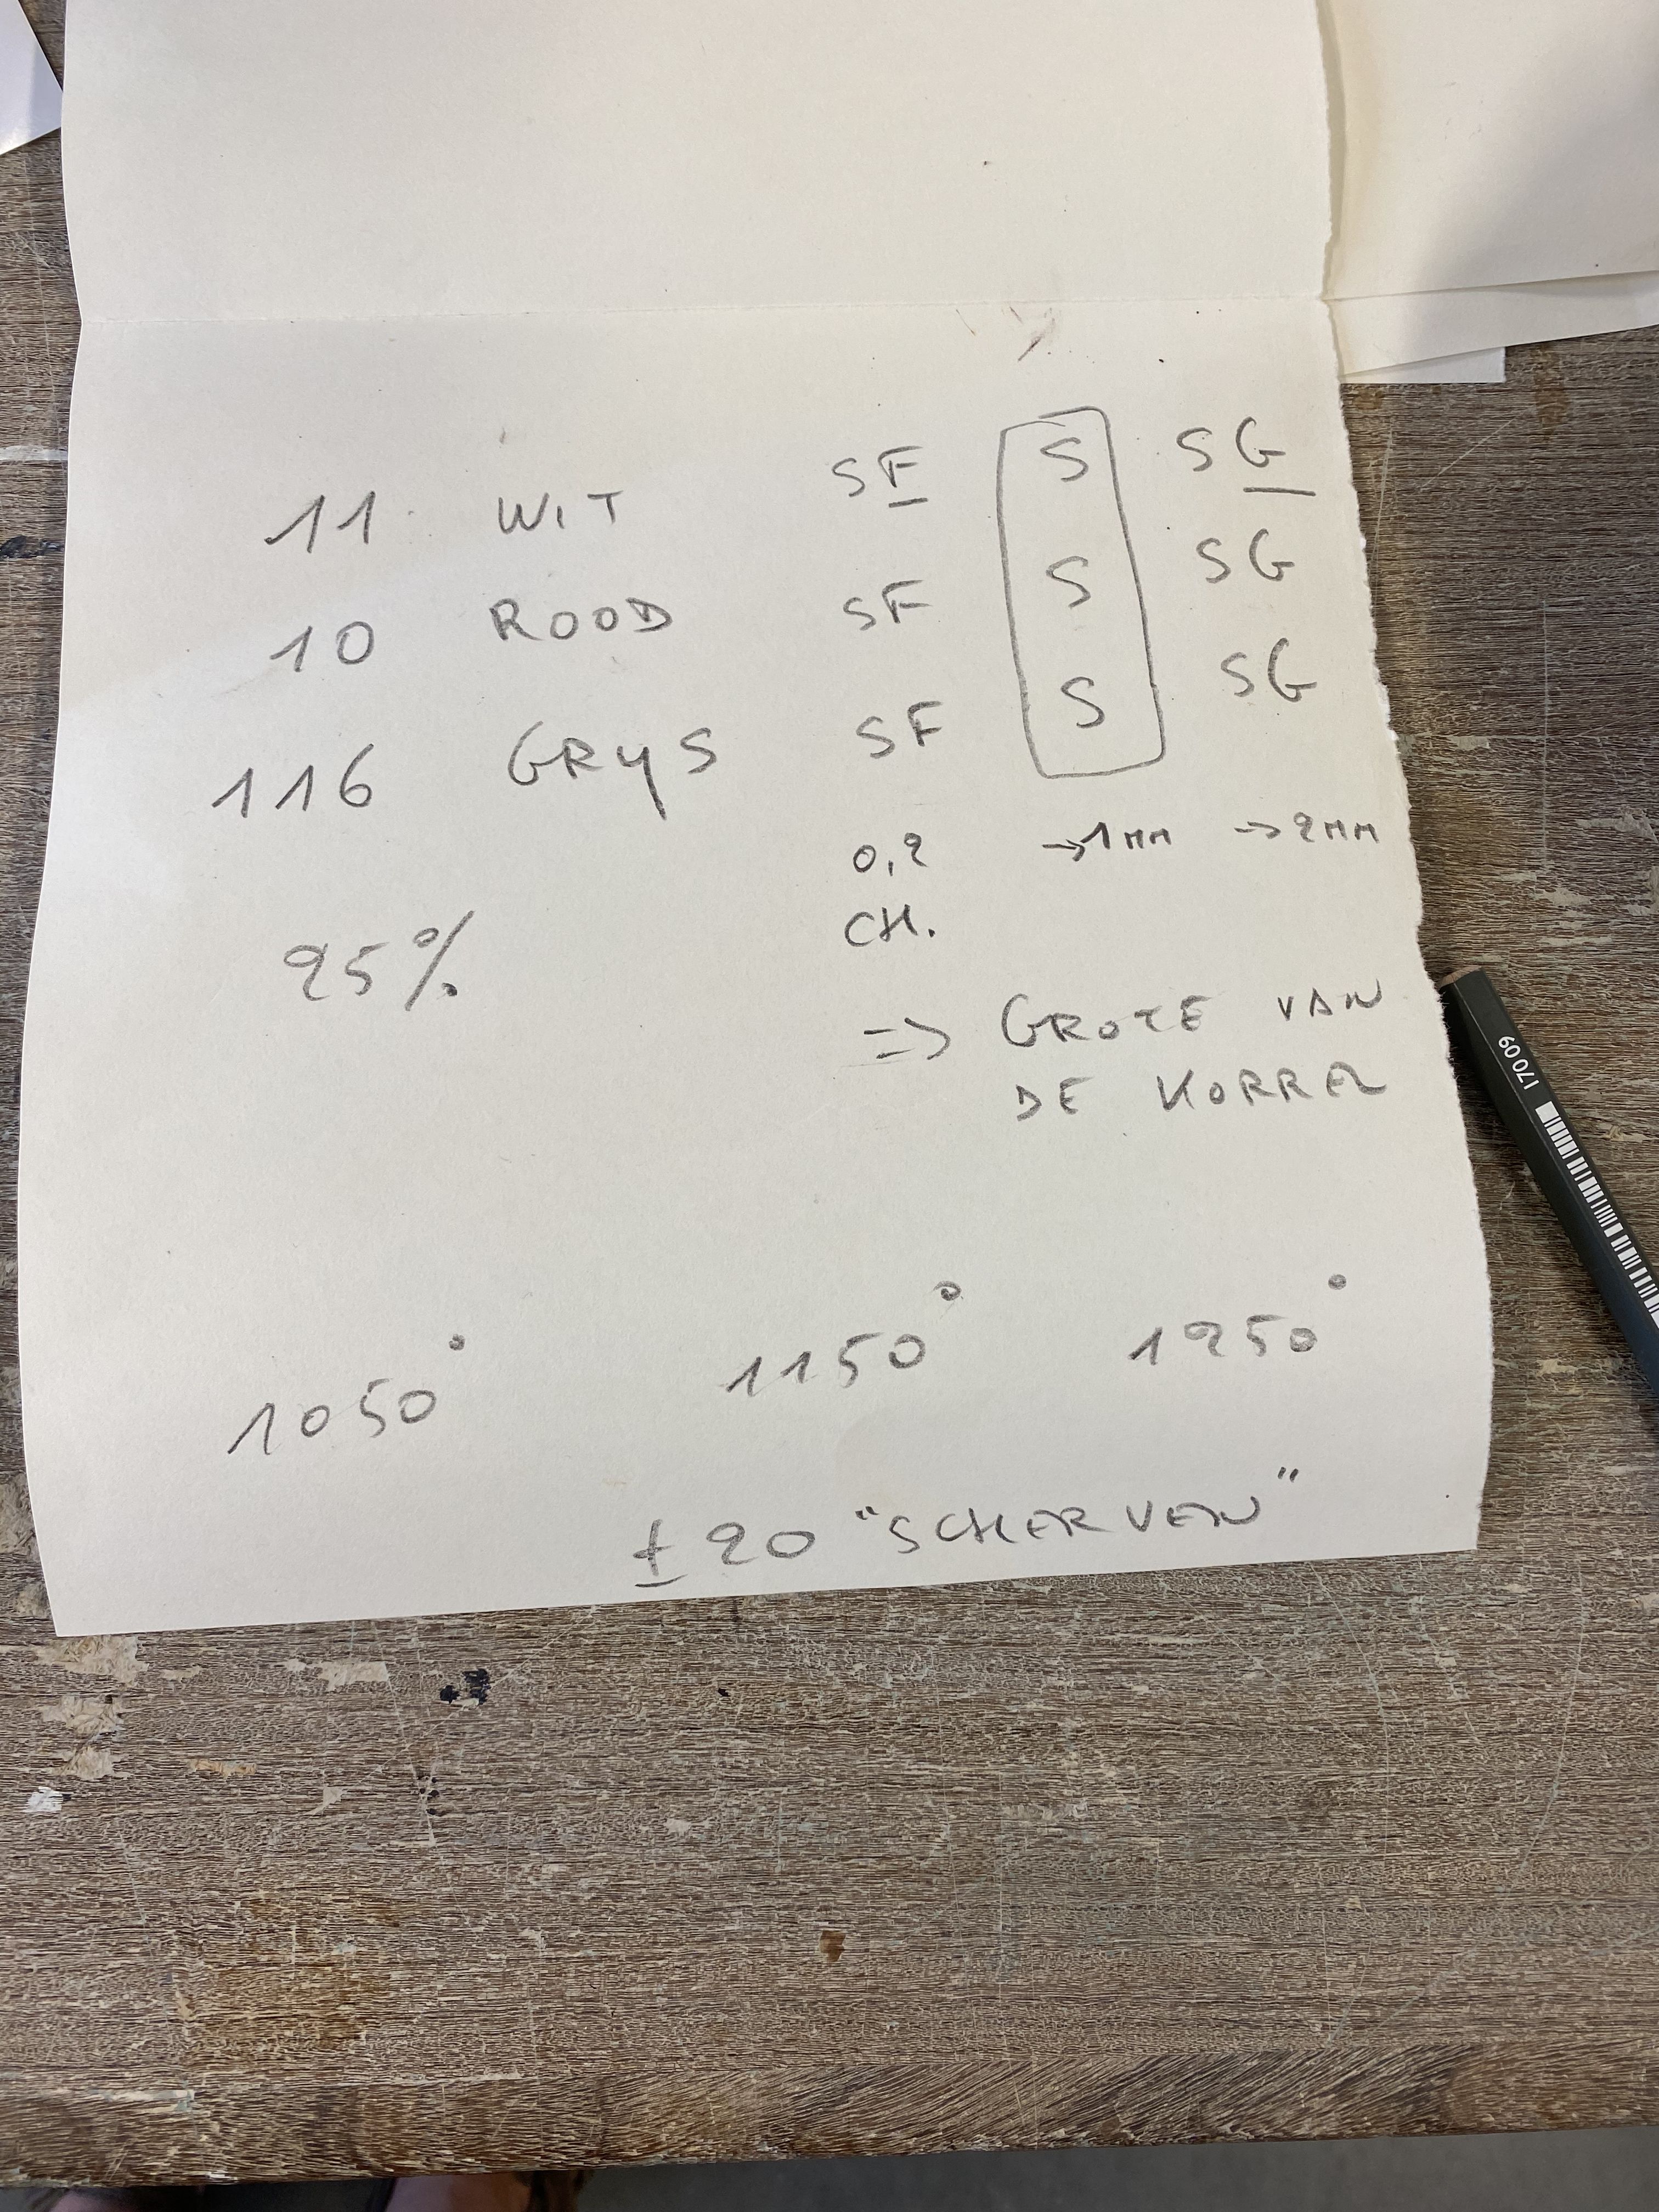 11 WIT SF S SG
10 ROOD SF S SG
116 GRYS SF S SG
0,2 →1MM →2MM
CH.
25%
=> GROTE VAN
DE KORREL
1050° 1150° 1250°
± 20 "SCHERVEN"
17009